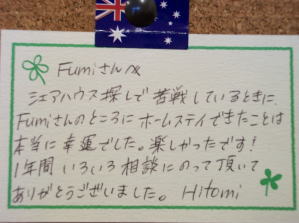 Fumiさんへ
シェアハウス探しで苦戦しているときに、
Fumiさんのところにホームステイできたことは
本当に幸運でした。楽しかったです!
1年間いろいろ相談にのって頂いて
ありがとうございました。 Hitomi